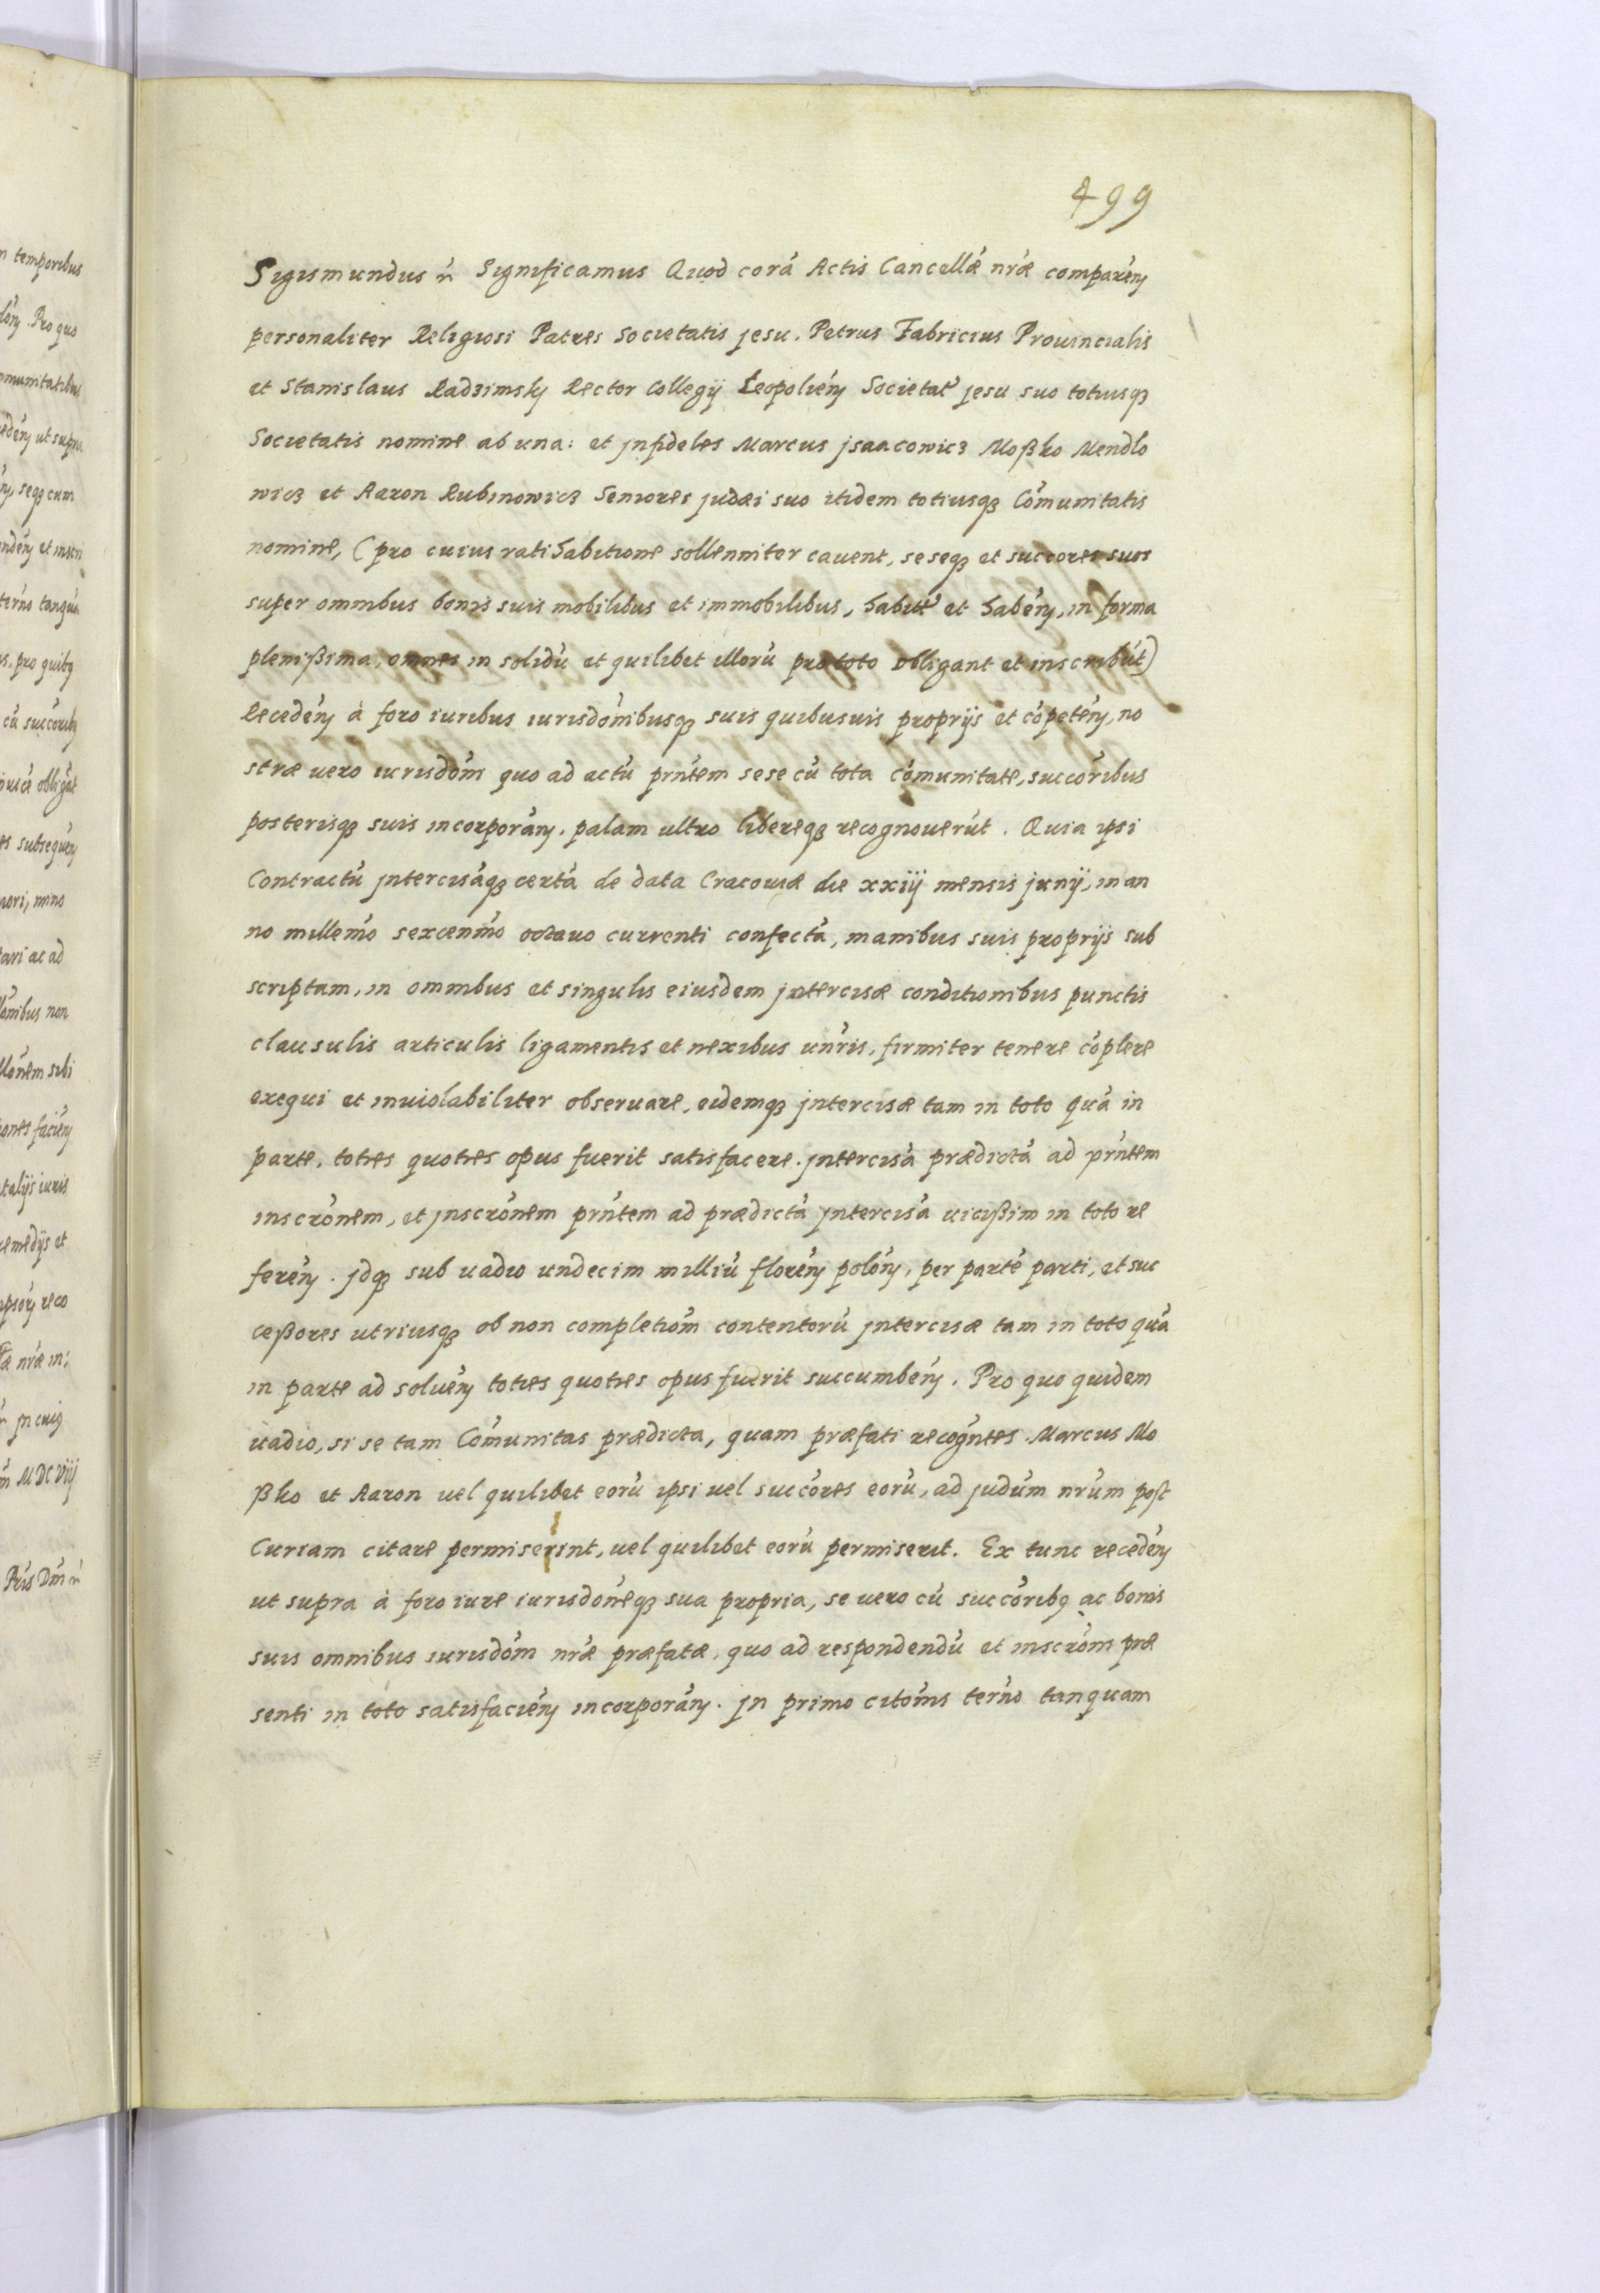 499
Sigismundus ñ Significamus Quod corã Actis Cancellæ nræ comparẽn
personaliter Religiosi Patres Societatis jesu. Petrus Fabricius Prouincialis
et Stanislaus Radzimsky Rector Collegij Leopoliẽn Societat' jesu suo totiusqꝫ
Societatis nomine ab una: et jnfideles Marcus jsaacowicz Moßko Mendlo
wicz et Aaron Rubinowicz Seniores judæi suo itidem totiusqꝫ Cõmunitatis
nomine, (pro cuius ratihabitione sollenniter cauent, seseqꝫ et succores suos
super omnibus bonis suis mobilibus et immobilibus, habit' et habẽn, in forma
plenißima, omnes in solidũ et quilibet illorũ pro toto obligant et inscribũt)
Recedẽn à foro iuribus iurisdõnibusqꝫ suis quibusuis proprijs et cõpetẽn, no
stræ uero iurisdõni quo ad actũ prñtem sese cũ tota cõmunitate, succõribus
posterisqꝫ suis incorporãn, palam ultro libereqꝫ recognouerũt. Quia ipsi
Contractũ jntercisãqꝫ certã de data Cracouiæ die xxiij mensis junij, in an
no millem̃o sexcenm̃o octauo currenti confectã, manibus suis proprijs sub
scriptam, in omnibus et singulis eiusdem jntercisæ conditionibus punctis
clausulis articulis ligamentis et nexibus uñris, firmiter tenere cõplere
exequi et inuiolabiliter obseruare, eidemqꝫ jntercisæ tam in toto quã in
parte, toties quoties opus fuerit satisfacere. jntercisã prædictã ad prñtem
inscrõnem, et jnscrõnem prñtem ad prædictã jntercisã uicißim in toto re
ferẽn. jdqꝫ sub uadio undecim milliũ florẽn polõn, per partẽ parti, et suc
ceßores utriusqꝫ ob non completiõm contentorũ jntercisæ tam in toto quã
in parte ad soluẽn toties quoties opus fuerit succumbẽn. Pro quo quidem
uadio, si se tam Cõmunitas prædicta, quam præfati recogñtes Marcus Mo
ßko et Aaron uel quilibet eorũ ipsi uel succõres eorũ, ad judũm nrũm post
Curiam citare permiserint, uel quilibet eorũ permiserit. Ex tunc recedẽn
ut supra à foro iure iurisdõneqꝫ sua propria, se uero cũ succõribꝫ ac bonis
suis omnibus iurisdõni nræ præfatæ, quo ad respondendũ et inscrõni præ
senti in toto satisfaciẽn incorporãn. jn primo citõnis terñno tanquam